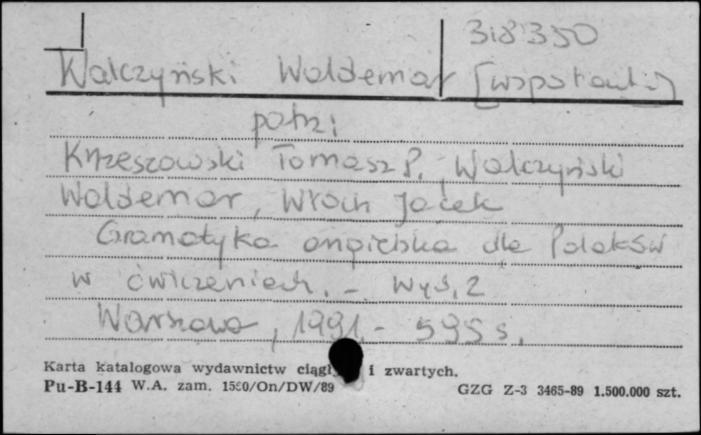 318350
Walczyński Waldemar [współaut.]
patrz:
Krzeszowski Tomasz P., Walczyński
Waldemar, Włoch Jacek
Gramatyka angielska dla Polaków
w ćwiczeniach. - Wyd. 2
Warszawa, 1991 - 595 s.
Karta katalogowa wydawnictw ciągł i zwartych.
Pu-B-144 W.A. zam. 1550/On/DW/89 GZG Z-3 3465-89 1.500.000 szt.